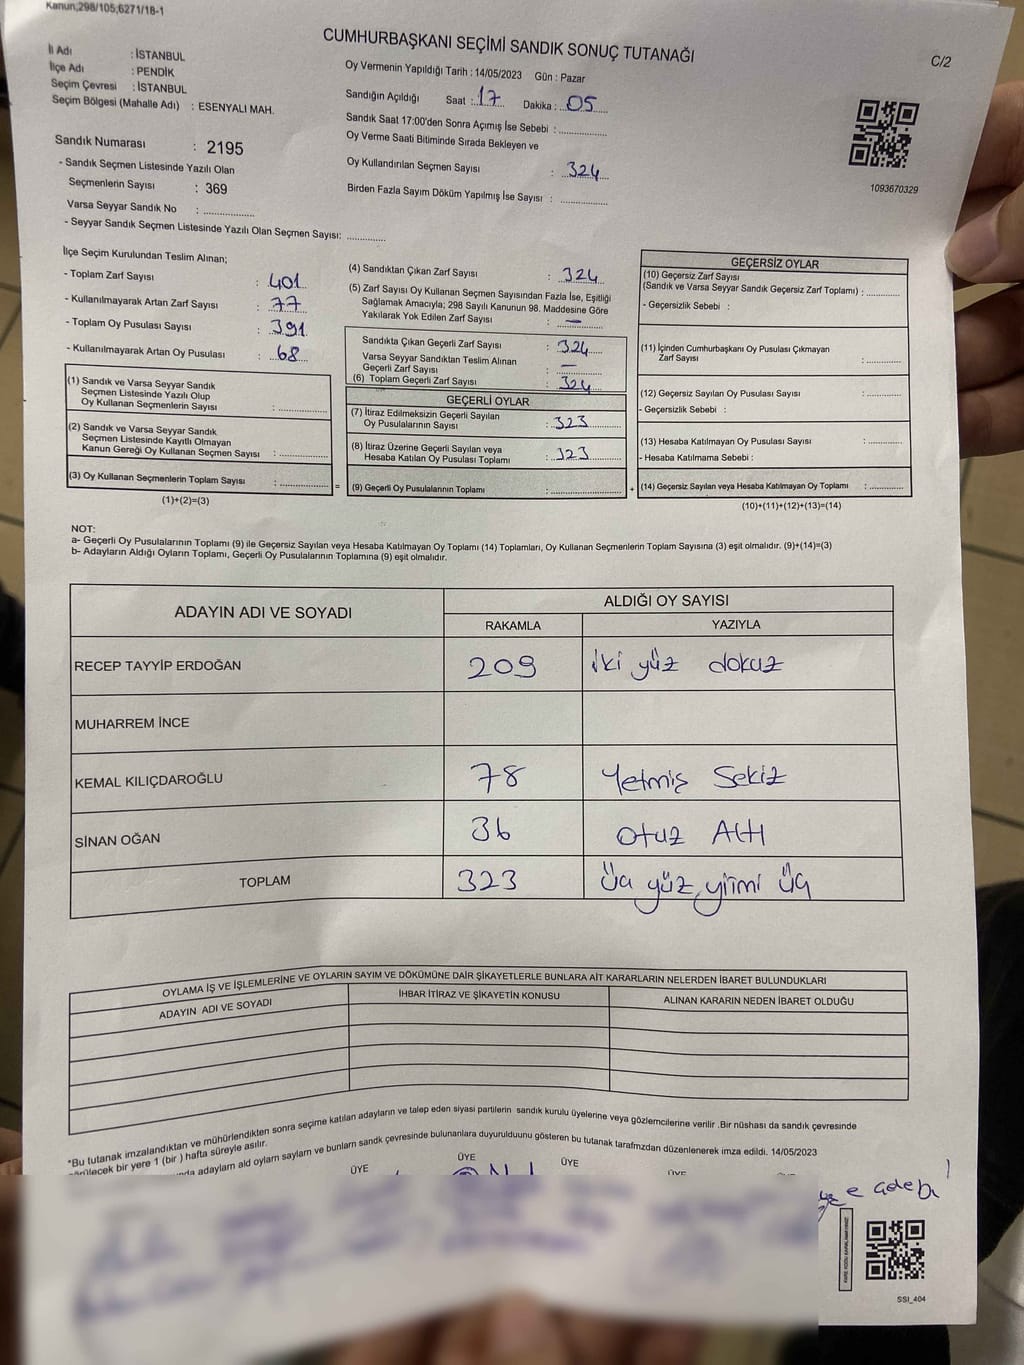 Kanun;298/105;6271/18-1
CUMHURBAŞKANI SEÇİMİ SANDIK SONUÇ TUTANAĞI
C/2
İl Adı : İSTANBUL
İlçe Adı : PENDİK
Seçim Çevresi : İSTANBUL
Seçim Bölgesi (Mahalle Adı) : ESENYALI MAH.
Oy Vermenin Yapıldığı Tarih : 14/05/2023 Gün : Pazar
Sandığın Açıldığı Saat : 17 Dakika : 05
Sandık Saat 17:00'den Sonra Açımış İse Sebebi :
Oy Verme Saati Bitiminde Sırada Bekleyen ve
Oy Kullandırılan Seçmen Sayısı : 324
Birden Fazla Sayım Döküm Yapılmış İse Sayısı :
1093670329
Sandık Numarası : 2195
- Sandık Seçmen Listesinde Yazılı Olan
Seçmenlerin Sayısı : 369
Varsa Seyyar Sandık No :
- Seyyar Sandık Seçmen Listesinde Yazılı Olan Seçmen Sayısı:
İlçe Seçim Kurulundan Teslim Alınan;
- Toplam Zarf Sayısı : 401
- Kullanılmayarak Artan Zarf Sayısı : 77
- Toplam Oy Pusulası Sayısı : 391
- Kullanılmayarak Artan Oy Pusulası : 68
(1) Sandık ve Varsa Seyyar Sandık
Seçmen Listesinde Yazılı Olup
Oy Kullanan Seçmenlerin Sayısı :
(2) Sandık ve Varsa Seyyar Sandık
Seçmen Listesinde Kayıtlı Olmayan
Kanun Gereği Oy Kullanan Seçmen Sayısı :
(3) Oy Kullanan Seçmenlerin Toplam Sayısı :
(1)+(2)=(3)
=
(4) Sandıktan Çıkan Zarf Sayısı : 324
(5) Zarf Sayısı Oy Kullanan Seçmen Sayısından Fazla İse, Eşitliği
Sağlamak Amacıyla; 298 Sayılı Kanunun 98. Maddesine Göre
Yakılarak Yok Edilen Zarf Sayısı : —
Sandıkta Çıkan Geçerli Zarf Sayısı : 324
Varsa Seyyar Sandıktan Teslim Alınan
Geçerli Zarf Sayısı : —
(6) Toplam Geçerli Zarf Sayısı : 324
GEÇERLİ OYLAR
(7) İtiraz Edilmeksizin Geçerli Sayılan
Oy Pusulalarının Sayısı : 323
(8) İtiraz Üzerine Geçerli Sayılan veya
Hesaba Katılan Oy Pusulası Toplamı : 323
(9) Geçerli Oy Pusulalarının Toplamı :
+
GEÇERSİZ OYLAR
(10) Geçersiz Zarf Sayısı
(Sandık ve Varsa Seyyar Sandık Geçersiz Zarf Toplamı) :
- Geçersizlik Sebebi :
(11) İçinden Cumhurbaşkanı Oy Pusulası Çıkmayan
Zarf Sayısı :
(12) Geçersiz Sayılan Oy Pusulası Sayısı :
- Geçersizlik Sebebi :
(13) Hesaba Katılmayan Oy Pusulası Sayısı :
- Hesaba Katılmama Sebebi :
(14) Geçersiz Sayılan veya Hesaba Katılmayan Oy Toplamı :
(10)+(11)+(12)+(13)=(14)
NOT:
a- Geçerli Oy Pusulalarının Toplamı (9) ile Geçersiz Sayılan veya Hesaba Katılmayan Oy Toplamı (14) Toplamları, Oy Kullanan Seçmenlerin Toplam Sayısına (3) eşit olmalıdır. (9)+(14)=(3)
b- Adayların Aldığı Oyların Toplamı, Geçerli Oy Pusulalarının Toplamına (9) eşit olmalıdır.
ADAYIN ADI VE SOYADI
ALDIĞI OY SAYISI
RAKAMLA YAZIYLA
RECEP TAYYİP ERDOĞAN 209 iki yüz dokuz
MUHARREM İNCE
KEMAL KILIÇDAROĞLU 78 Yetmiş Sekiz
SİNAN OĞAN 36 Otuz Altı
TOPLAM 323 Üç yüz yirmi üç
OYLAMA İŞ VE İŞLEMLERİNE VE OYLARIN SAYIM VE DÖKÜMÜNE DAİR ŞİKAYETLERLE BUNLARA AİT KARARLARIN NELERDEN İBARET BULUNDUKLARI
ADAYIN ADI VE SOYADI
İHBAR İTİRAZ VE ŞİKAYETİN KONUSU
ALINAN KARARIN NEDEN İBARET OLDUĞU
*Bu tutanak imzalandıktan ve mühürlendikten sonra seçime katılan adayların ve talep eden siyasi partilerin sandık kurulu üyelerine veya gözlemcilerine verilir .Bir nüshası da sandık çevresinde
görülecek bir yere 1 (bir ) hafta süreyle asılır.
adayların ald oyların sayların ve bunların sandk çevresinde bulunanlara duyurulduunu gösteren bu tutanak tarafmzdan düzenlenerek imza edildi. 14/05/2023
ÜYE ÜYE ÜYE ÜYE
SSI_404